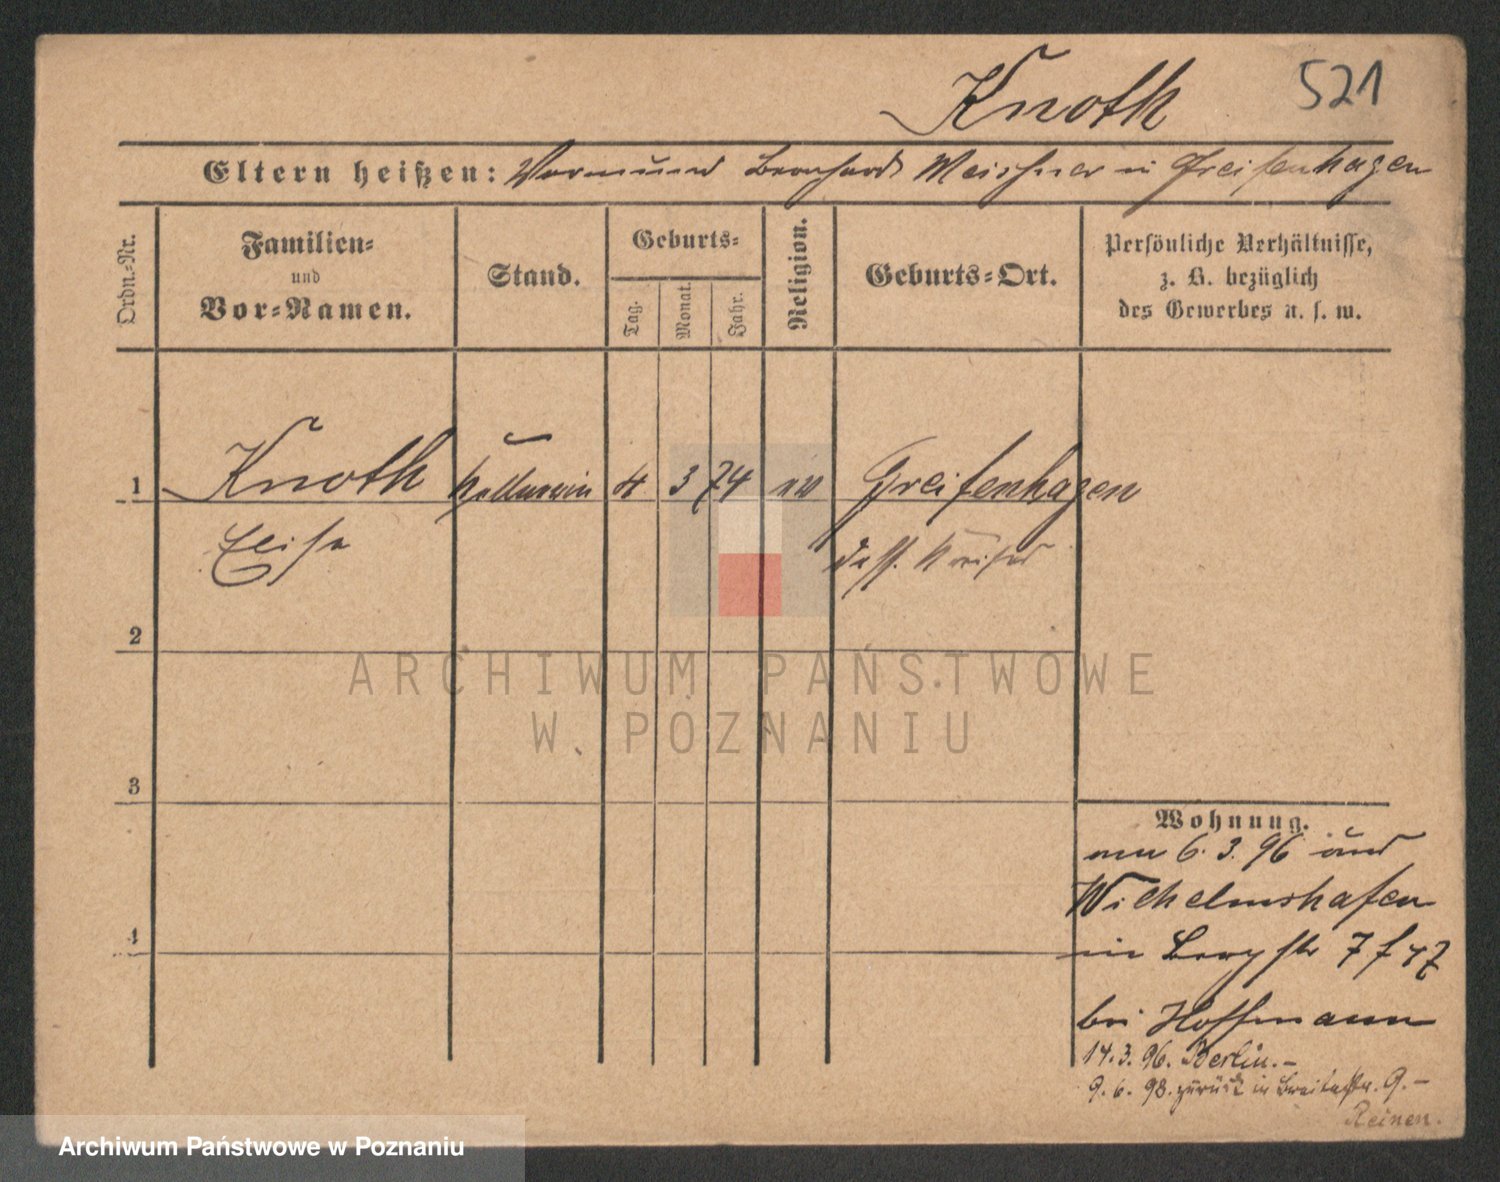 Knoth 521
Eltern heißen: Vormund Bernhard Meissner in Greifenhagen
Ordn.-Nr.
Familien-
und
Vor-Namen.
Stand.
Geburts-
Tag.
Monat.
Jahr.
Religion.
Geburts-Ort.
Persönliche Verhältnisse,
z. B. bezüglich
des Gewerbes u. s. w.
1 Knoth Kellnerin 4 3 74 ev Greifenhagen
Elise dess. Kreises
2
3
4
Wohnung.
6. 3. 96
Wilhelmshafen
in Bergstr 7
bei Hoffmann
14. 3. 96. Berlin.-
9. 6. 98. zurück in Breitestr. 9.-
Reinen.
ARCHIWUM PAŃSTWOWE
W POZNANIU
Archiwum Państwowe w Poznaniu